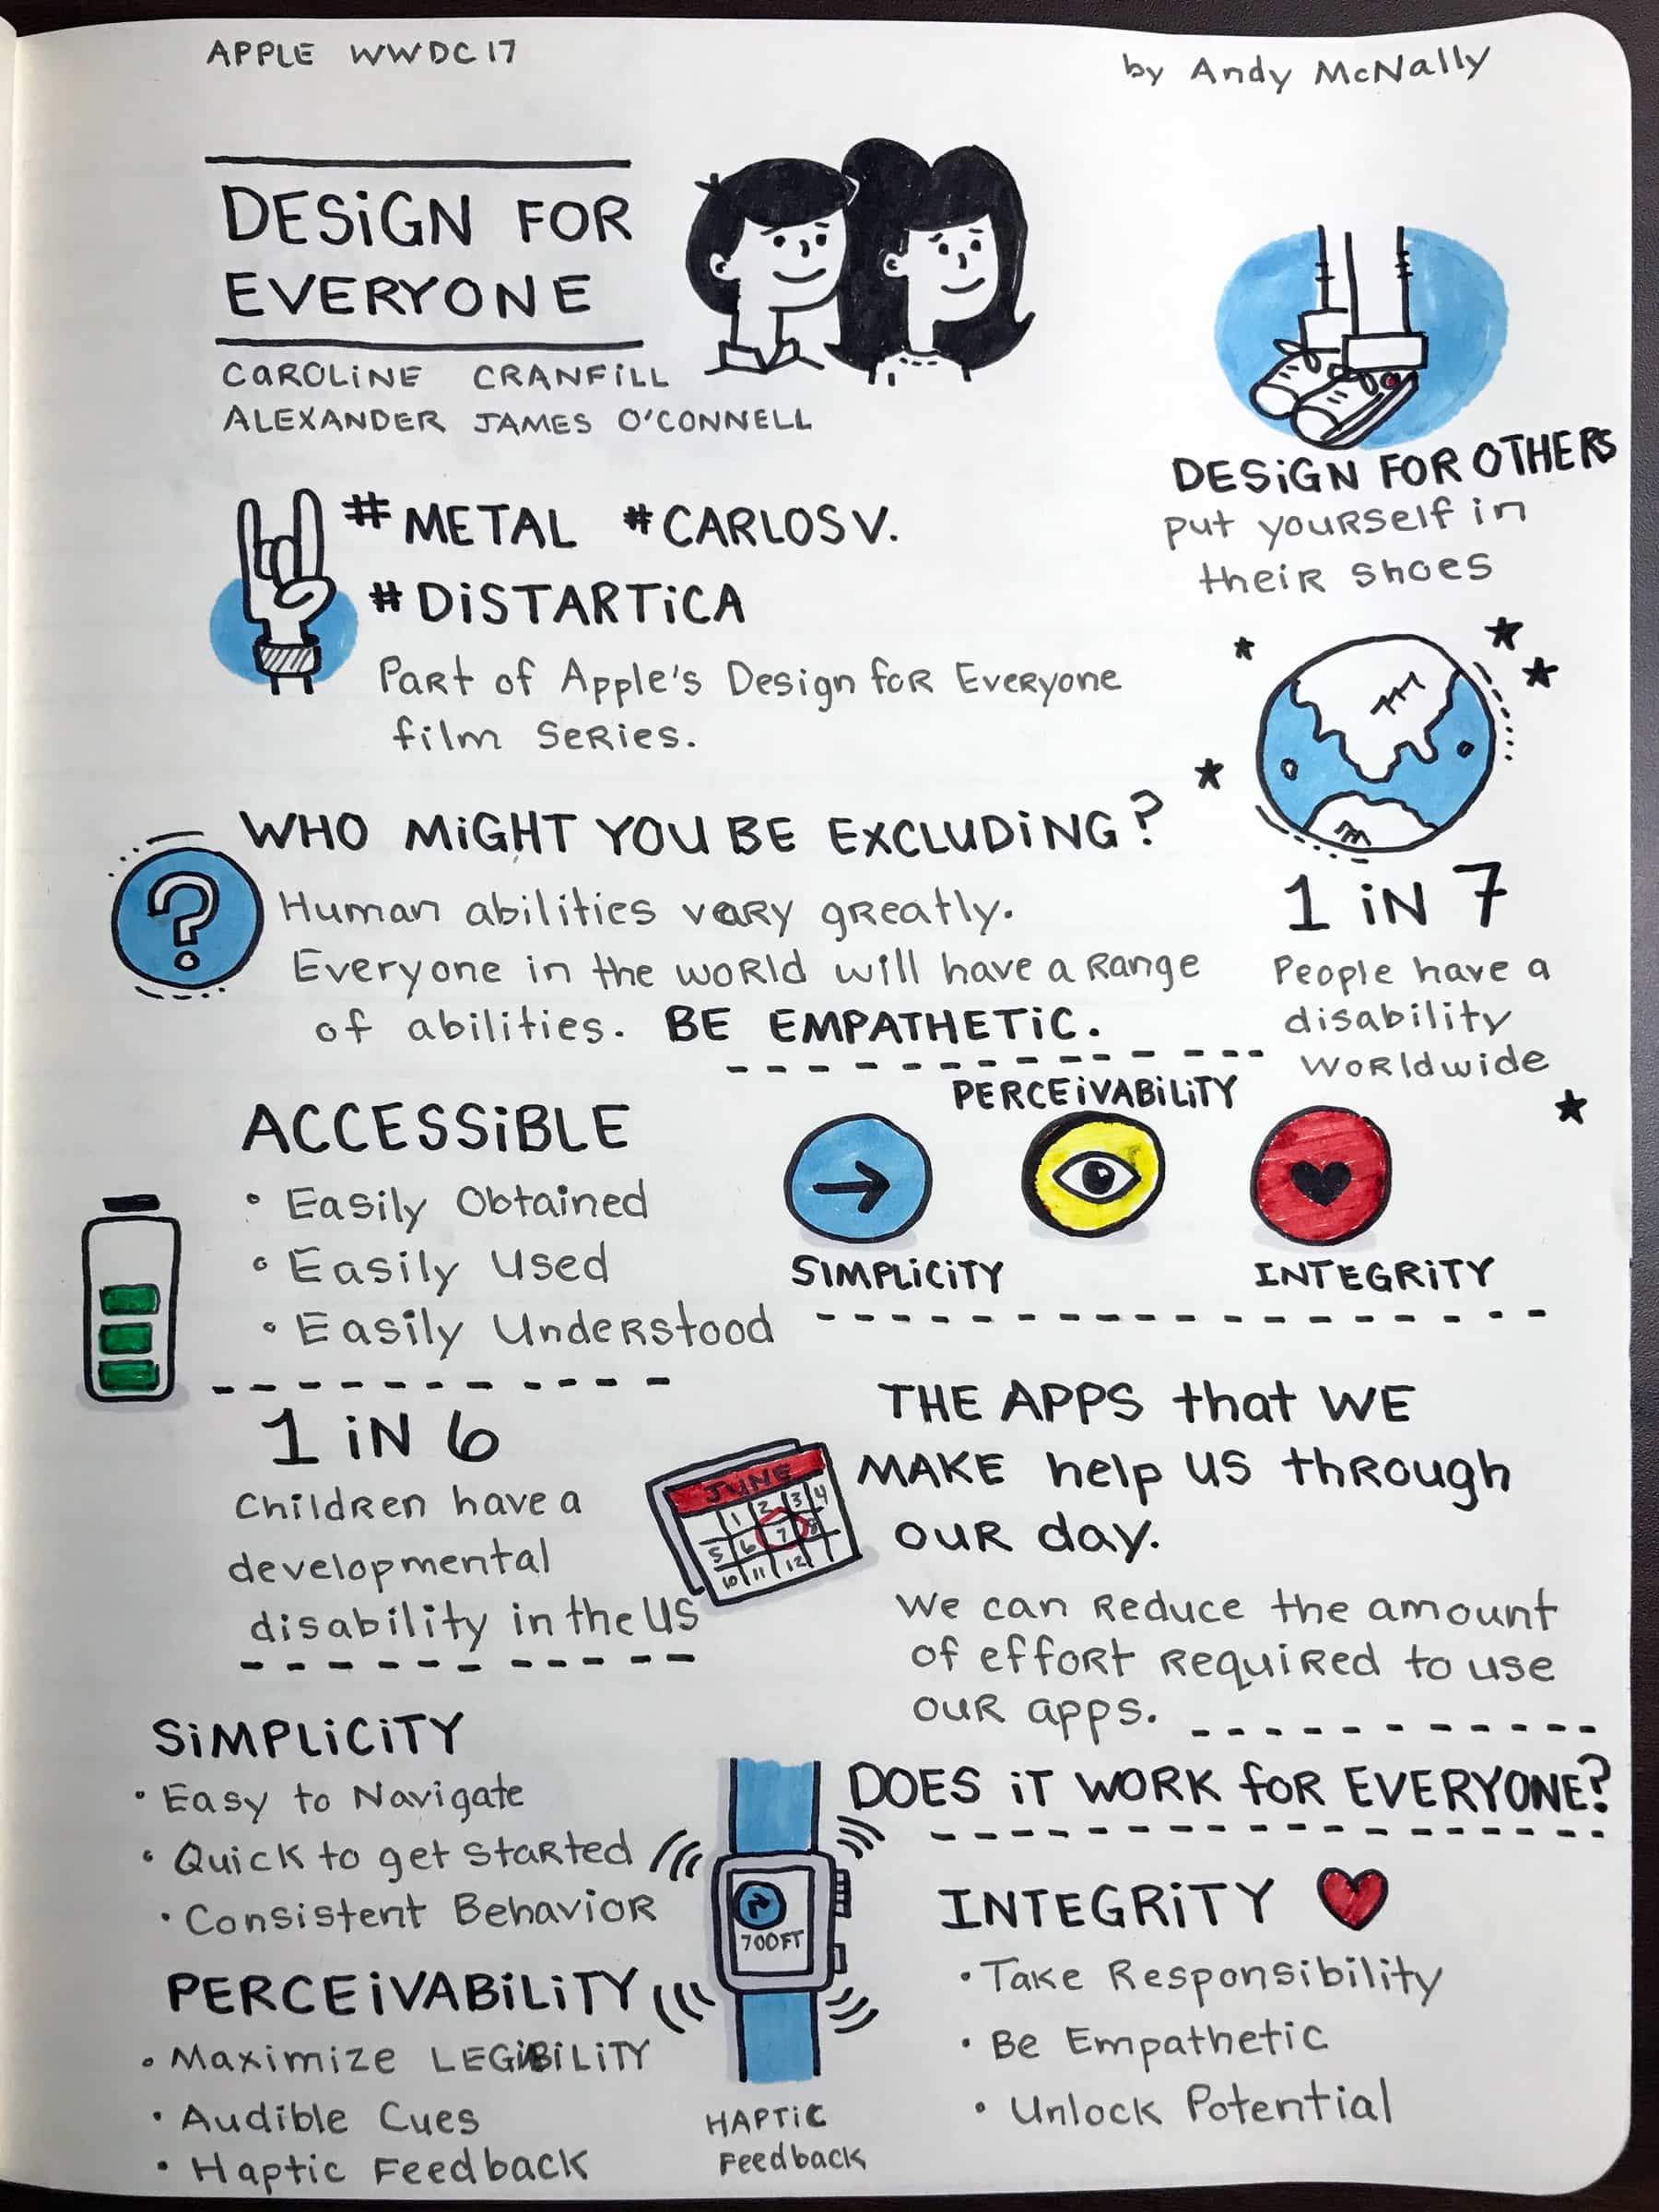 APPLE WWDC17
by Andy McNally
DESiGN FOR
EVERYONE
CAROLiNE CRANFiLL
ALEXANDER JAMES O'CONNELL
DESiGN FOR OTHERS
put yourself in
their shoes
#METAL #CARLOSV.
#DiSTARTiCA
Part of Apple's Design for Everyone
film series.
WHO MiGHT YOU BE EXCLUDiNG?
Human abilities vary greatly.
Everyone in the world will have a range
of abilities. BE EMPATHETiC.
1 iN 7
People have a
disability
worldwide
ACCESSiBLE
• Easily Obtained
• Easily Used
• Easily Understood
PERCEiVABiLiTY
SiMPLiCiTY
INTEGRiTY
1 iN 6
Children have a
developmental
disability in the US
JUNE
1 2 3 4
5 6 7 8
10 11 12
THE APPS that WE
MAKE help us through
our day.
We can reduce the amount
of effort required to use
our apps.
SiMPLiCiTY
• Easy to Navigate
• Quick to get started
• Consistent Behavior
DOES iT WORK for EVERYONE?
700FT
PERCEiVABiLiTY
• Maximize LEGiBiLiTY
• Audible Cues
• Haptic Feedback
HAPTiC
Feedback
INTEGRiTY
• Take Responsibility
• Be Empathetic
• Unlock Potential